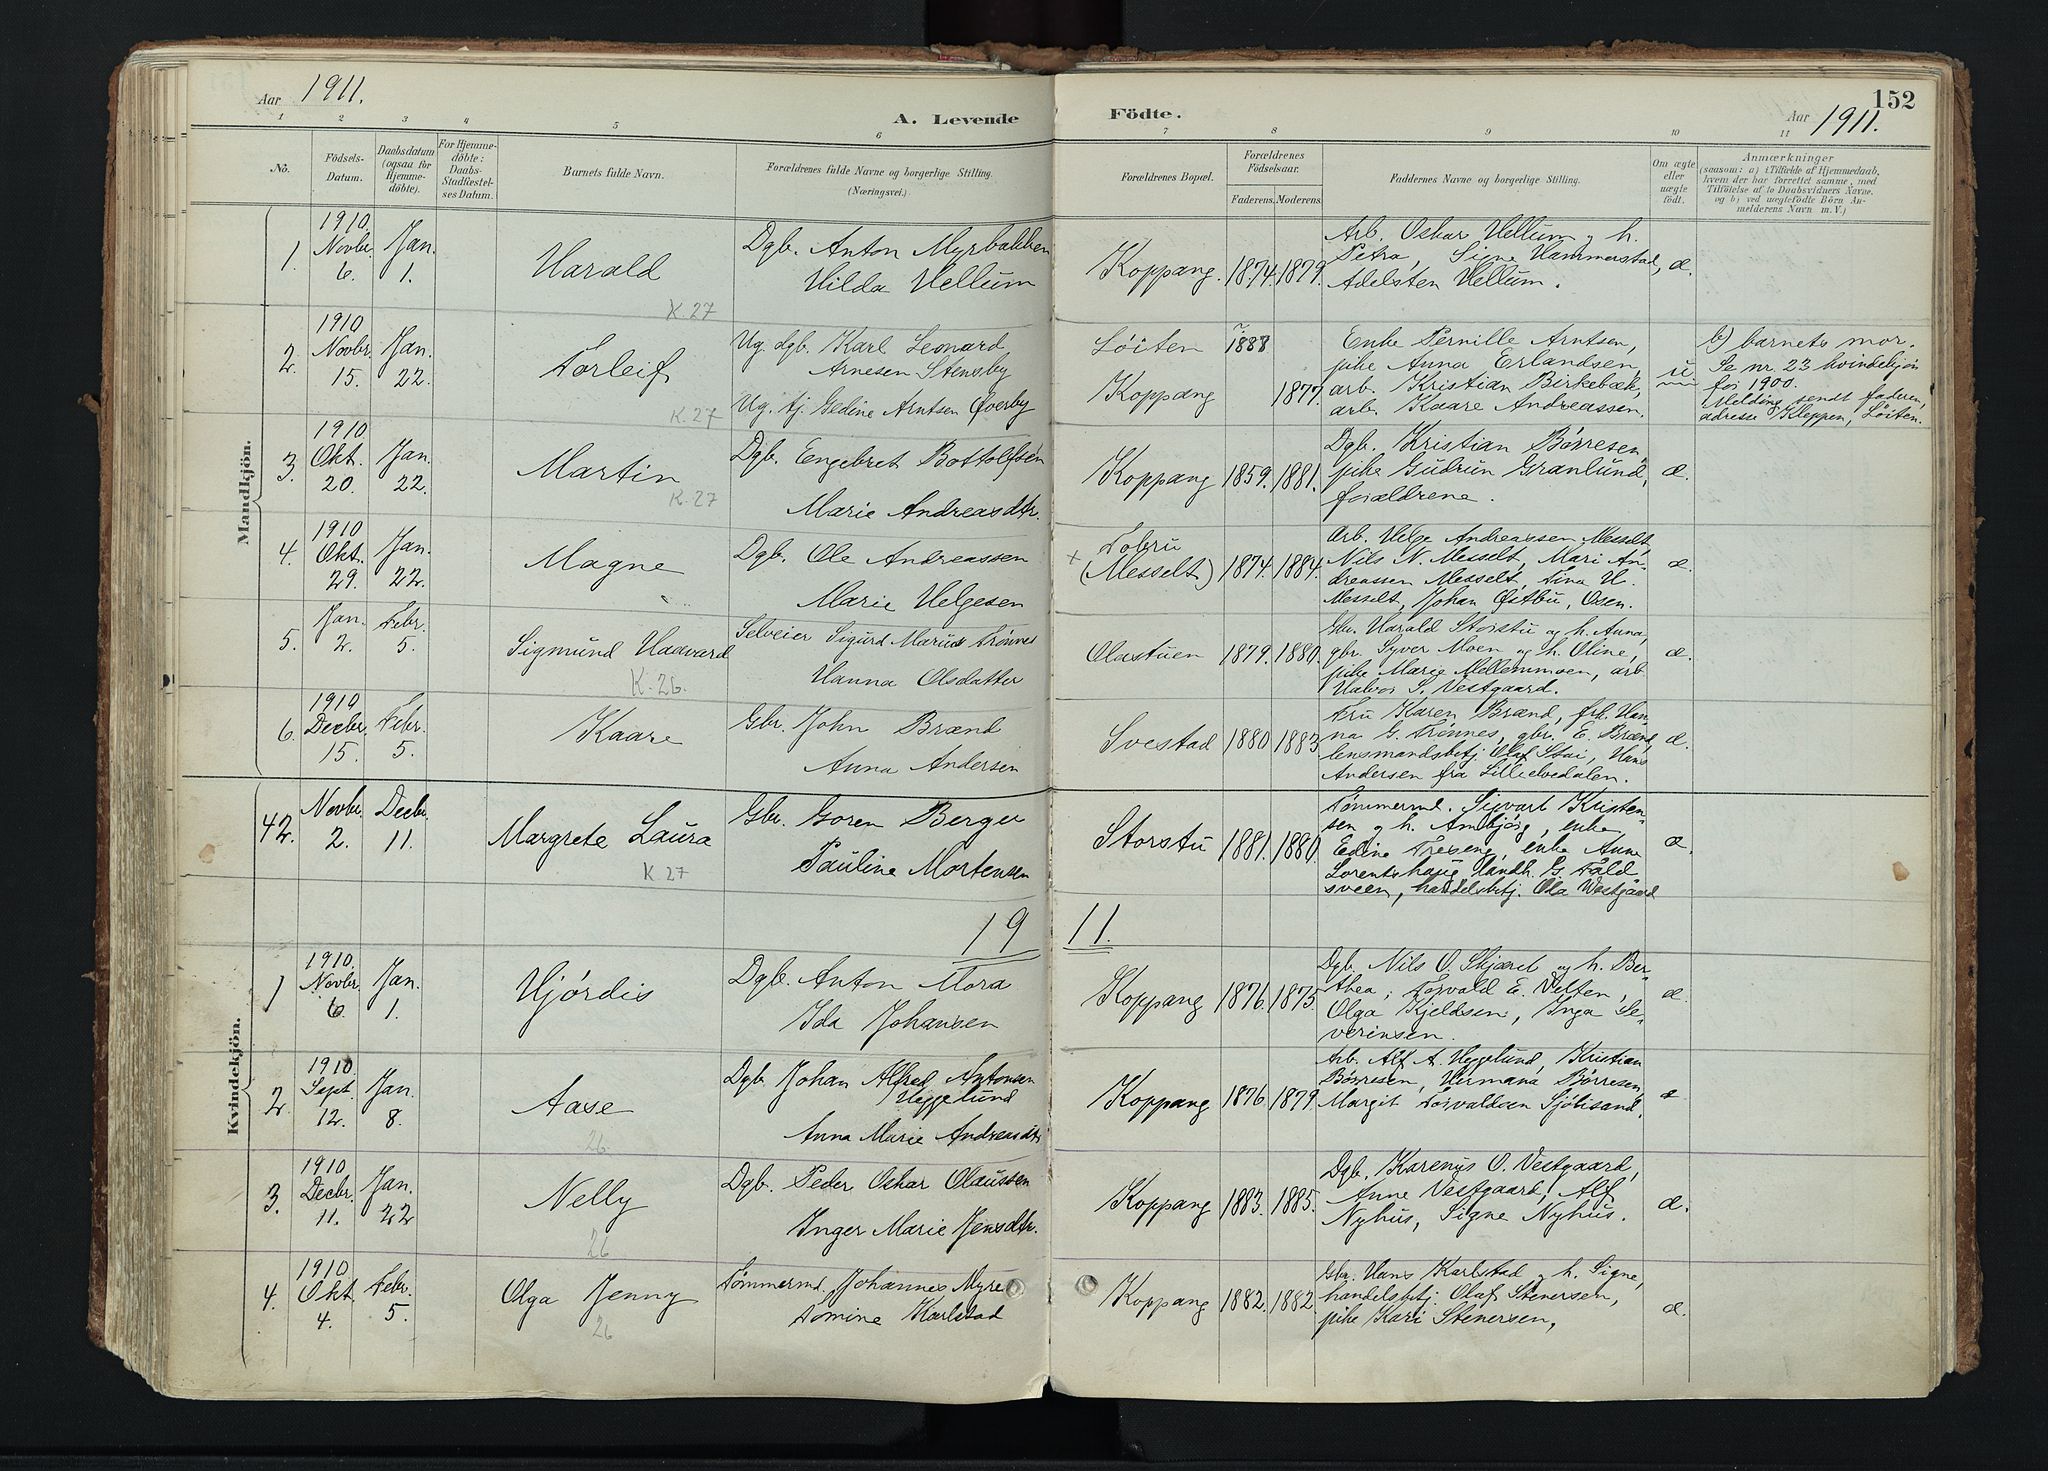 152
Aar 1911.
A. Levende Födte.
Aar 1911.
1 2 3 4 5 6 7 8 9 10 11
No.
Födsels-Datum.
Daabsdatum (ogsaa for Hjemme-döbte).
For Hjemme-döbte: Daabs-Stadfæstel-ses Datum.
Barnets fulde Navn.
Forældrenes fulde Navne og borgerlige Stilling. (Næringsvei.)
Forældrenes Bopæl.
Forældrenes Födselsaar.
Faderens. Moderens.
Faddernes Navne og borgerlige Stilling.
Om ægte eller uægte födt.
Anmærkninger
(saasom: a) i Tilfælde af Hjemmedaab, hvem der har forrettet samme, med Tilföielse af to Daabsvidners Navne, og b) ved uægtefödte Börn Anmelderens Navn m. V.)
Mandkjön.
1. 1910 Novbr. 6. Jan. 1. Harald K.27
Dgb. Anton Myrbakken
Hilda Hellum
Koppang. 1874. 1879.
Arb. Oskar Hellum og h.
Petra, Signe Hammerstad,
Adelsten Hellum.
æ.
2. 1910 Novbr. 15. Jan. 22. Torleif K.27
Ug. dgb. Karl Leonard
Arnesen Stensby
Ug. tj. Gedine Arntsen Øverby
Löiten 1888
Koppang 1877.
Enke Pernille Arntsen,
pike Anna Erlandsen,
arb. Kristian Birkebæk,
arb. Kaare Andreassen.
u
b) barnets mor.
Se nr. 23 kvindekjön
for 1900.
Melding sendt faderen,
adresse Kleppen, Löiten.
3. 1910 Okt. 20. Jan. 22. Martin K.27
Dgb. Engebret Bottolfsen
Marie Andreasdtr.
Koppang 1859. 1881.
Dgb. Kristian Börresen,
pike Gudrun Granlund,
forældrene.
æ.
4. 1910 Okt. 29. Jan. 22. Magne
Dgb. Ole Andreassen
Marie Helgesen
+ (Messelt) 1874. 1884.
Arb. Helge Andreassen Messelt,
Nils N. Messelt, Mari An-
dreassen Messelt, Tina H.
Messelt, Johan Østbu, Osen.
æ.
5. Jan. 2. Febr. 5. Sigmund Haavard K.26.
Selveier Sigurd Marius Trønnes
Hanna Olsdatter
Olastuen 1879. 1880.
Gbr. Harald Storstu og h. Anna,
gbr. Syver Moen og h. Oline,
pike Marie Mellemmoen, arb.
Halvor S. Vestgaard.
æ.
6. 1910 Decbr. 15. Febr. 5. Kaare
Gbr. John Brænd
Anna Andersen
Svestad 1880 1883
Fru Karen Brænd, frk. Han-
na G. Trønnes, gbr. E. Brænd,
lensmandsbetj. Olaf Stai, Hans
Andersen fra Lilleelvedalen.
æ.
42. Novbr. 2. Decbr. 11. Margrete Laura K 27
Gbr. Goren Berger
Pauline Mortensen
Storstu 1881. 1880.
Tömmermd. Sigvart Kristen-
sen og h. Ambjörg, enke
Edine Treseng, enke Anne
Lorentshaug, Handh. G. Fold
sveen, handelsbetj. Ola Westgaard
æ.
19 11.
Kvindekjön.
1 1910. Novbr. 6. Jan. 1. Hjördis
Dgb. Anton Mora
Ida Johansen
Koppang 1876. 1875.
Dgb. Nils O. Skjæret og h. Ber-
thea, Torvald E. Velten,
Olga Kjeldsen, Inga Se-
verinsen.
æ.
2. 1910. Sept. 12. Jan. 8. Aase 26
Dgb. Johan Alfred Antonsen
Heggelund
Anna Marie Andreasdtr
Koppang 1876. 1879.
Arb. Alf A. Heggelund, Kristian
Börresen, Hermana Börresen,
Margit Torvaldsen Sjölisand.
æ
3. 1910 Decbr. 11. Jan. 22 Nelly 26
Dgb. Peder Oskar Olaussen
Inger Marie Jensdtr.
Koppang 1883. 1885.
Dgb. Karenus O. Vestgaard,
Anne Vestgaard, Alf
Nyhus, Signe Nyhus.
æ.
4. 1910 Okt. 4. Febr. 5. Olga Jenny 26
Tömmermd. Johannes Myre
Tomine Karlstad
Koppang 1882. 1882.
Gbr. Hans Karlstad og h. Signe,
handelsbetj. Olaf Stenersen,
pike Kari Stenersen,
æ.